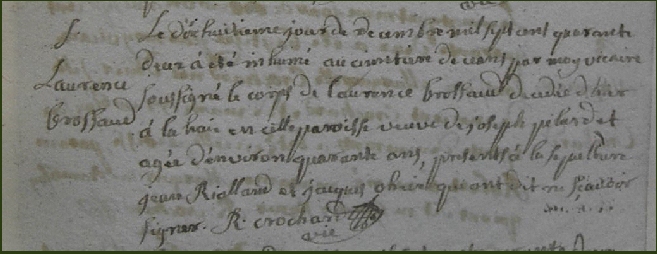 S
Laurence
brossaud
Le dixhuitieme jour de decembre mil sept cent quarante
deux a été inhumé au cimetiere de ceans par moy vicaire
soussigné le corps de laurence brossaud decedée d'hier
à la haie en cette paroisse veuve de joseph pelard et
agée d'environ quarante ans, presents à la sepulture
jean Rialland et jacques qui ont dit ne sçavoir
signer. R. crochard
vic